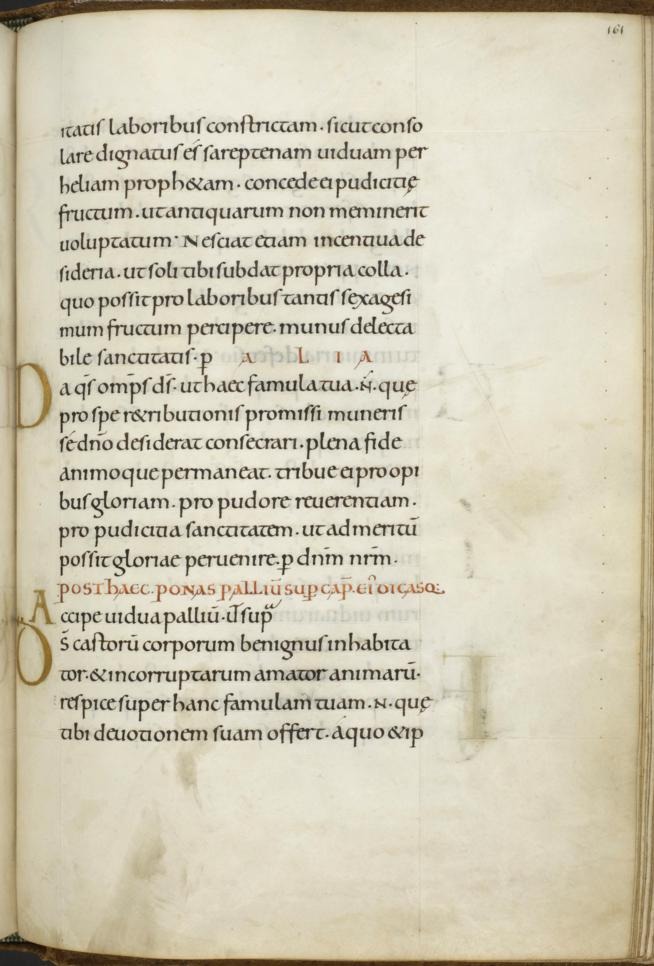 161
itatis laboribus constrictam · sicut conso
lare dignatus es̄ sareptenam uiduam per
heliam proph&am · concede ei pudicitię
fructum · ut antiquarum non meminerit
uoluptatum · Nesciat etiam incentiua de
sideria · ut soli tibi subdat propria colla ·
quo possit pro laboribus tantis sexagesi
mum fructum percipere · munus delecta
bile sanctitatis · p̄ A L I A
Da q̄s omp̄s ds̄ · ut haec famula tua · N̄ · quę
pro spe r&ributionis promissi muneris
se dn̄o desiderat consecrari · plena fide
animoque permaneat · tribue ei pro opi
bus gloriam · pro pudore reuerentiam ·
pro pudicitia sanctitatem · ut ad meritū
possit gloriae peruenire · p̄ dnm̄ nrm̄ ·
POST HAEC · PONAS PALLIŪ SUP̄ CAP̄ · EI
Accipe uidua palliū · ut̄ sup̄
Ds̄ castorū corporum benignus inhabita
tor · & incorruptarum amator animarū ·
respice super hanc famulam tuam · N · quę
tibi deuotionem suam offert · A quo & ip